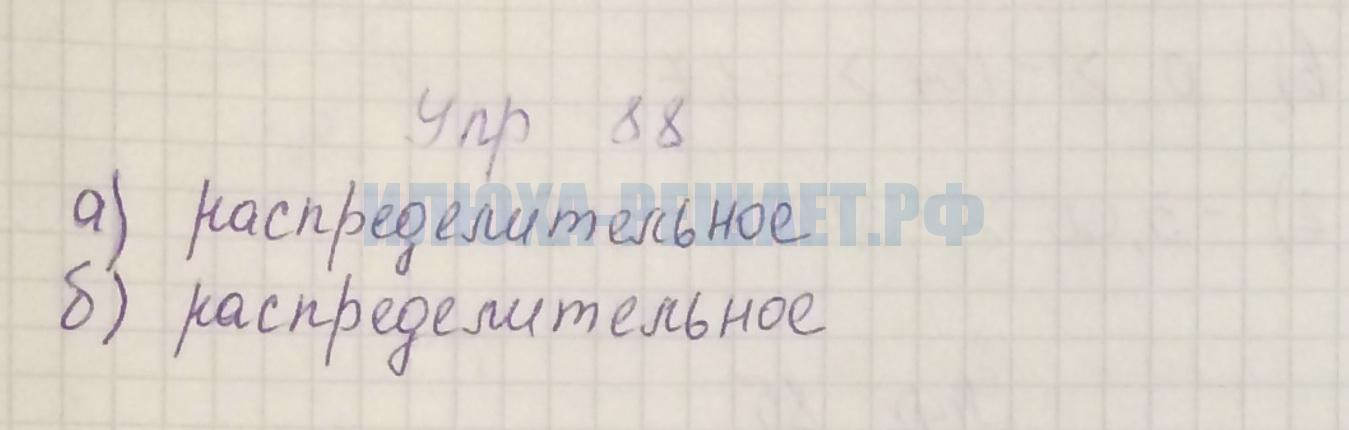 Упр 88
а) распределительное
ИЛЮХА-РЕШАЕТ.РФ
б) распределительное